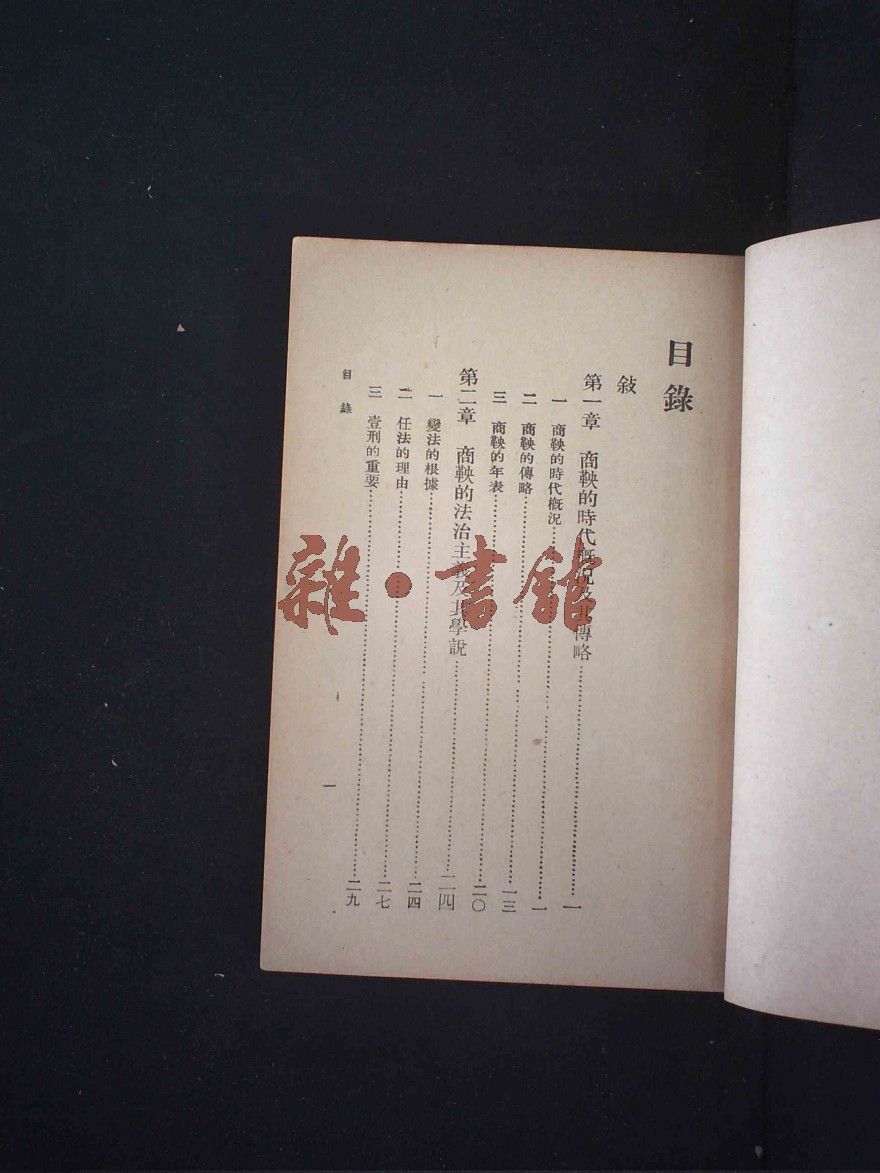 目錄
敍
第一章　商鞅的時代概況及其傳略……一
一　商鞅的時代概況……一
二　商鞅的傳略……一三
三　商鞅的年表……二〇
第二章　商鞅的法治主義及其學說……二四
一　變法的根據……二四
二　任法的理由……二七
三　壹刑的重要……二九
目錄
一
雜·書館